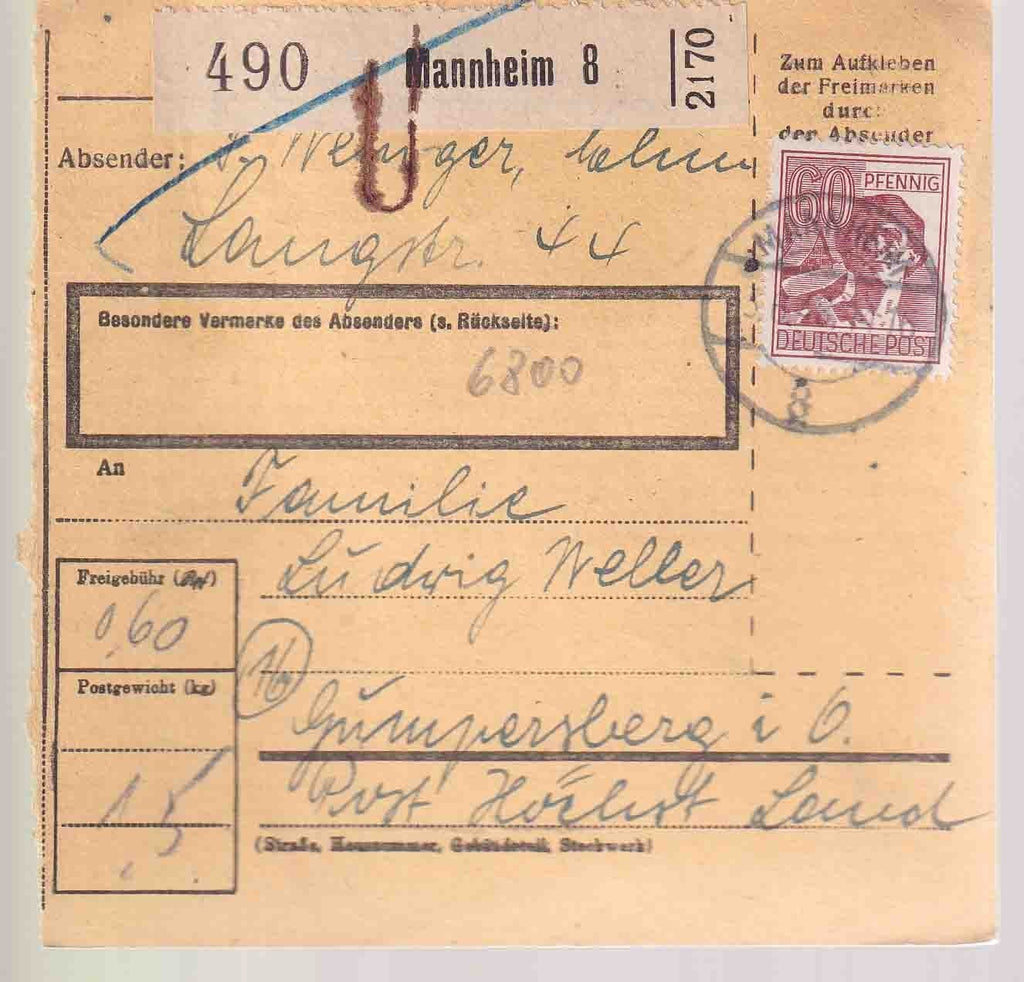 490 Mannheim 8 2170
Zum Aufkleben
der Freimarken
durch
den Absender
Absender:
Langstr. 44
60 PFENNIG
DEUTSCHE POST
8
Besondere Vermerke des Absenders (s. Rückseite):
6800
An
Familie
Ludwig Weller
Freigebühr
0,60
16
Postgewicht (kg)
Gumpersberg i O.
Post Höchst Land
15
(Straße, Hausnummer, Gebäudeteil, Stockwerk)